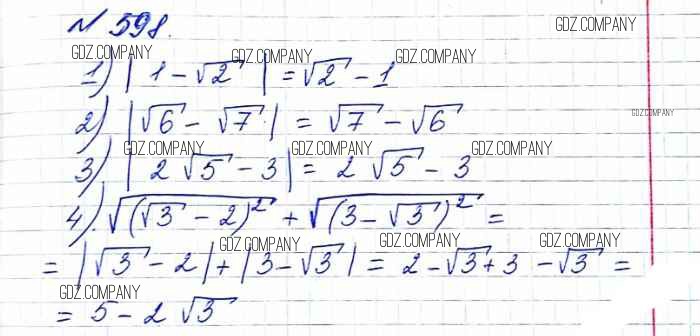 № 598.
GDZ.COMPANY
GDZ.COMPANY GDZ.COMPANY GDZ.COMPANY
1) |1 - √2| = √2 - 1
2) |√6 - √7| = √7 - √6
GDZ.COMPANY
GDZ.COMPANY GDZ.COMPANY GDZ.COMPANY
3) |2√5 - 3| = 2√5 - 3
4). √((√3 - 2)²) + √((3 - √3)²) =
GDZ.COMPANY GDZ.COMPANY GDZ.COMPANY
= |√3 - 2| + |3 - √3| = 2 - √3 + 3 - √3 =
GDZ.COMPANY
= 5 - 2√3